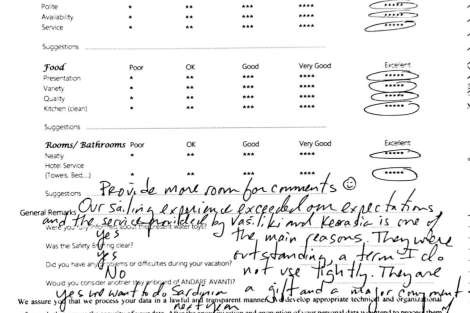 Polite * ** *** **** *****
Availability * ** *** **** *****
Service * ** *** **** *****
Suggestions
Food Poor OK Good Very Good Excellent
Presentation * ** *** **** *****
Variety * ** *** **** *****
Quality * ** *** **** *****
Kitchen (clean) * ** *** **** *****
Suggestions
Rooms/ Bathrooms Poor OK Good Very Good Excellent
Neaty * ** *** **** *****
Hotel Service
(Towers, Bed...) * ** *** **** *****
Suggestions Provide more room for comments ☺
General Remarks Our sailing experience exceeded our expectations
and the service provided by Vasiliki and Kerasia is one of
Were you
yes the main reasons. They were
Was the Safety Briefing clear?
yes outstanding, a term I do
Did you have any problems or difficulties during your vacation?
No not use lightly. They are
Would you consider another trip onboard of ANDARE AVANTI?
yes we want to do Sardinia a gift and a major component
We assure you that we process your data in a lawful and transparent manner develop appropriate technical and organizational
next